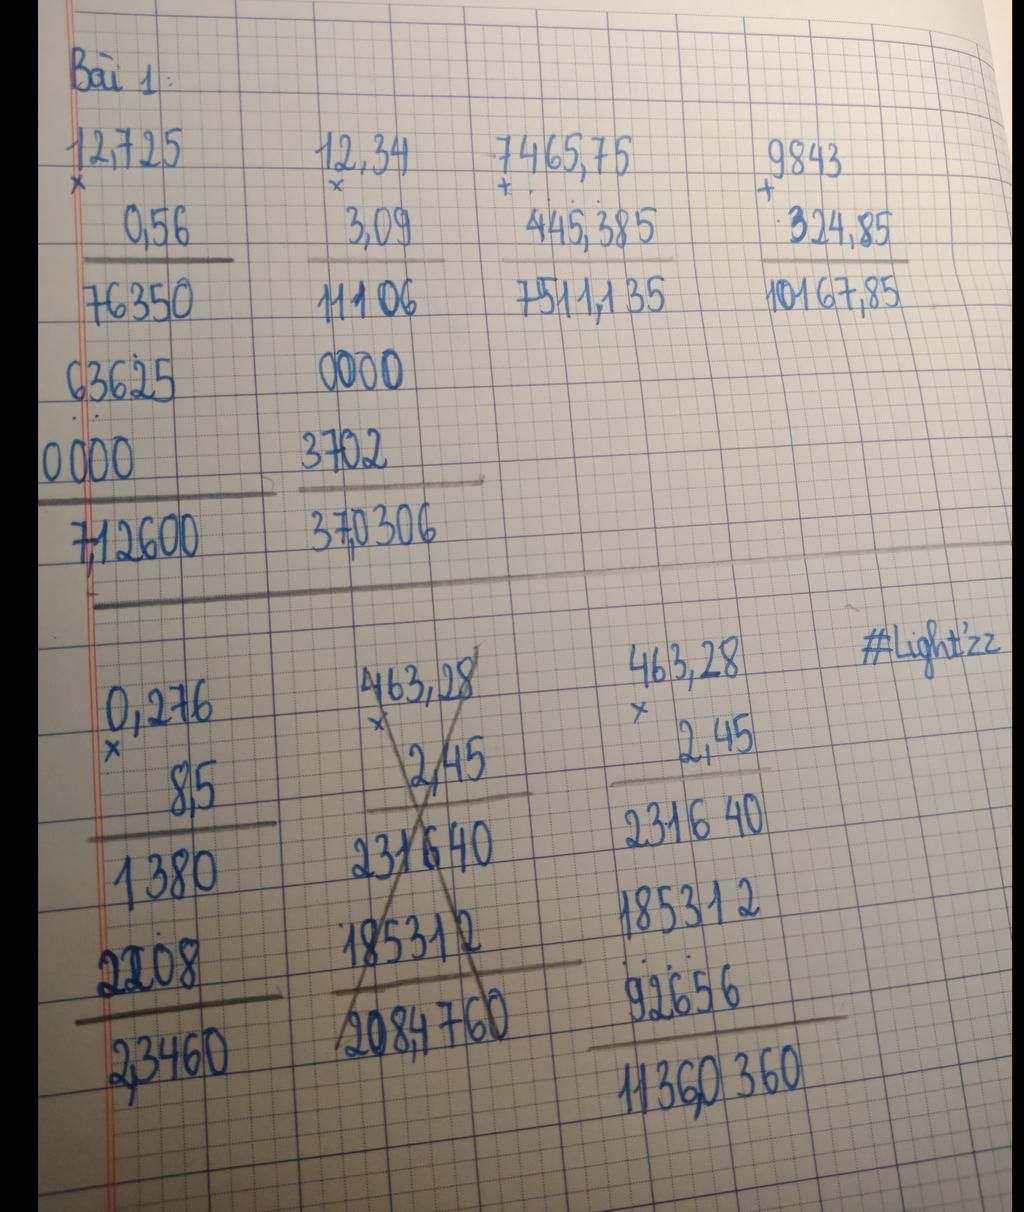 Bài 1:
12,725 12,34 7465,75 9843
x x + +
0,56 3,09 445,385 324,85
76350 11106 7511,135 10167,85
63625 0000
0000 3702
7,12600 37,0306
#Light'zz
0,276 463,28 463,28
x x x
8,5 2,45 2,45
1380 231640 231640
2208 185312 185312
92656
2,3460 208,4760 1136,0360